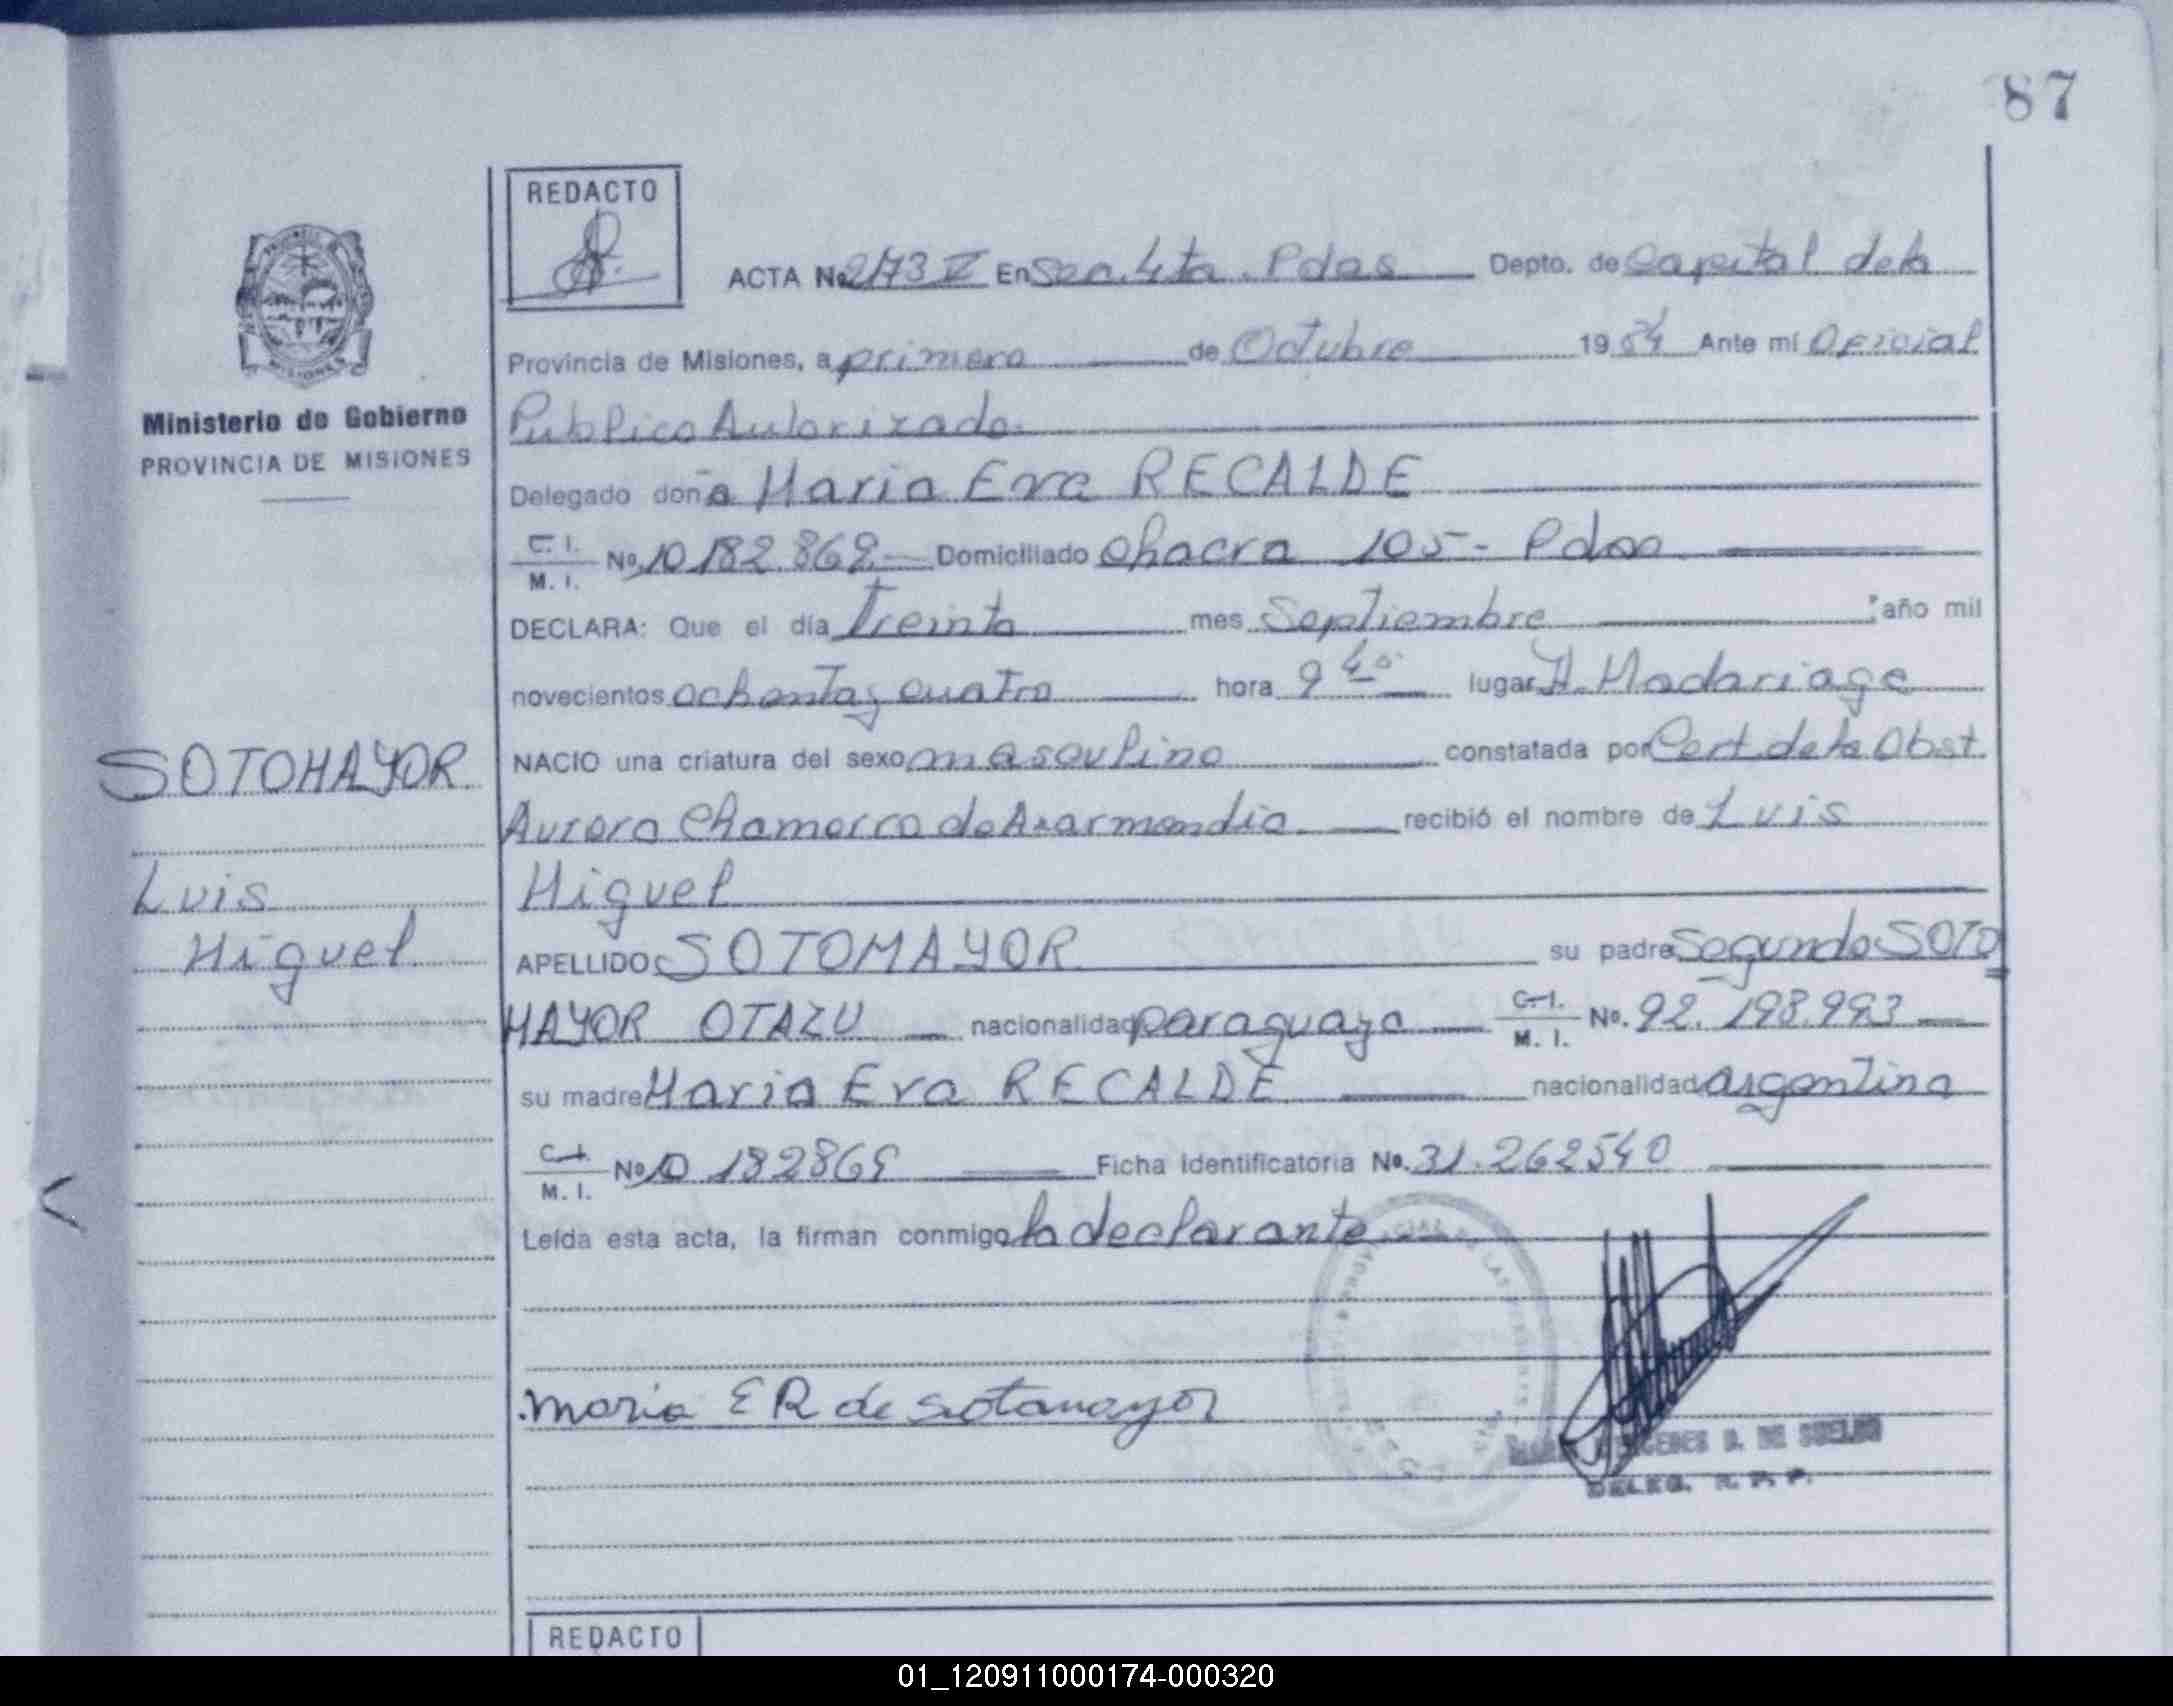 87
REDACTO
ACTA No 2173 V En Secc. 4ta. Pdas Depto. de Capital dela
Provincia de Misiones, a primero de Octubre 1984 Ante mí Oficial
Publico Autorizado
Ministerio de Gobierno
PROVINCIA DE MISIONES
Delegado doña Maria Eva RECALDE
C. I. / M. I. No. 10.182.869 Domiciliado chacra 105- Pdas
DECLARA: Que el día Treinta mes Septiembre año mil
novecientos ochenta y cuatro hora 9 40 lugar H. Madariaga
NACIO una criatura del sexo masculino constatada por Cert. de la Obst.
Aurora Chamorro de Azarmendia recibió el nombre de Luis
Miguel
SOTOMAYOR
Luis
Miguel
APELLIDO SOTOMAYOR su padre Segundo SOTO
MAYOR OTAZU nacionalidad paraguaya C. I. / M. I. No. 92.198.993
su madre Maria Eva RECALDE nacionalidad argentina
C. I. / M. I. No 10 182869 Ficha Identificatoria No. 31.262540
Leída esta acta, la firman conmigo la declarante
maria E R de sotomayor
MERCEDES D. DE SUELDO
DELEG. R. P. P.
REDACTO
01_120911000174-000320